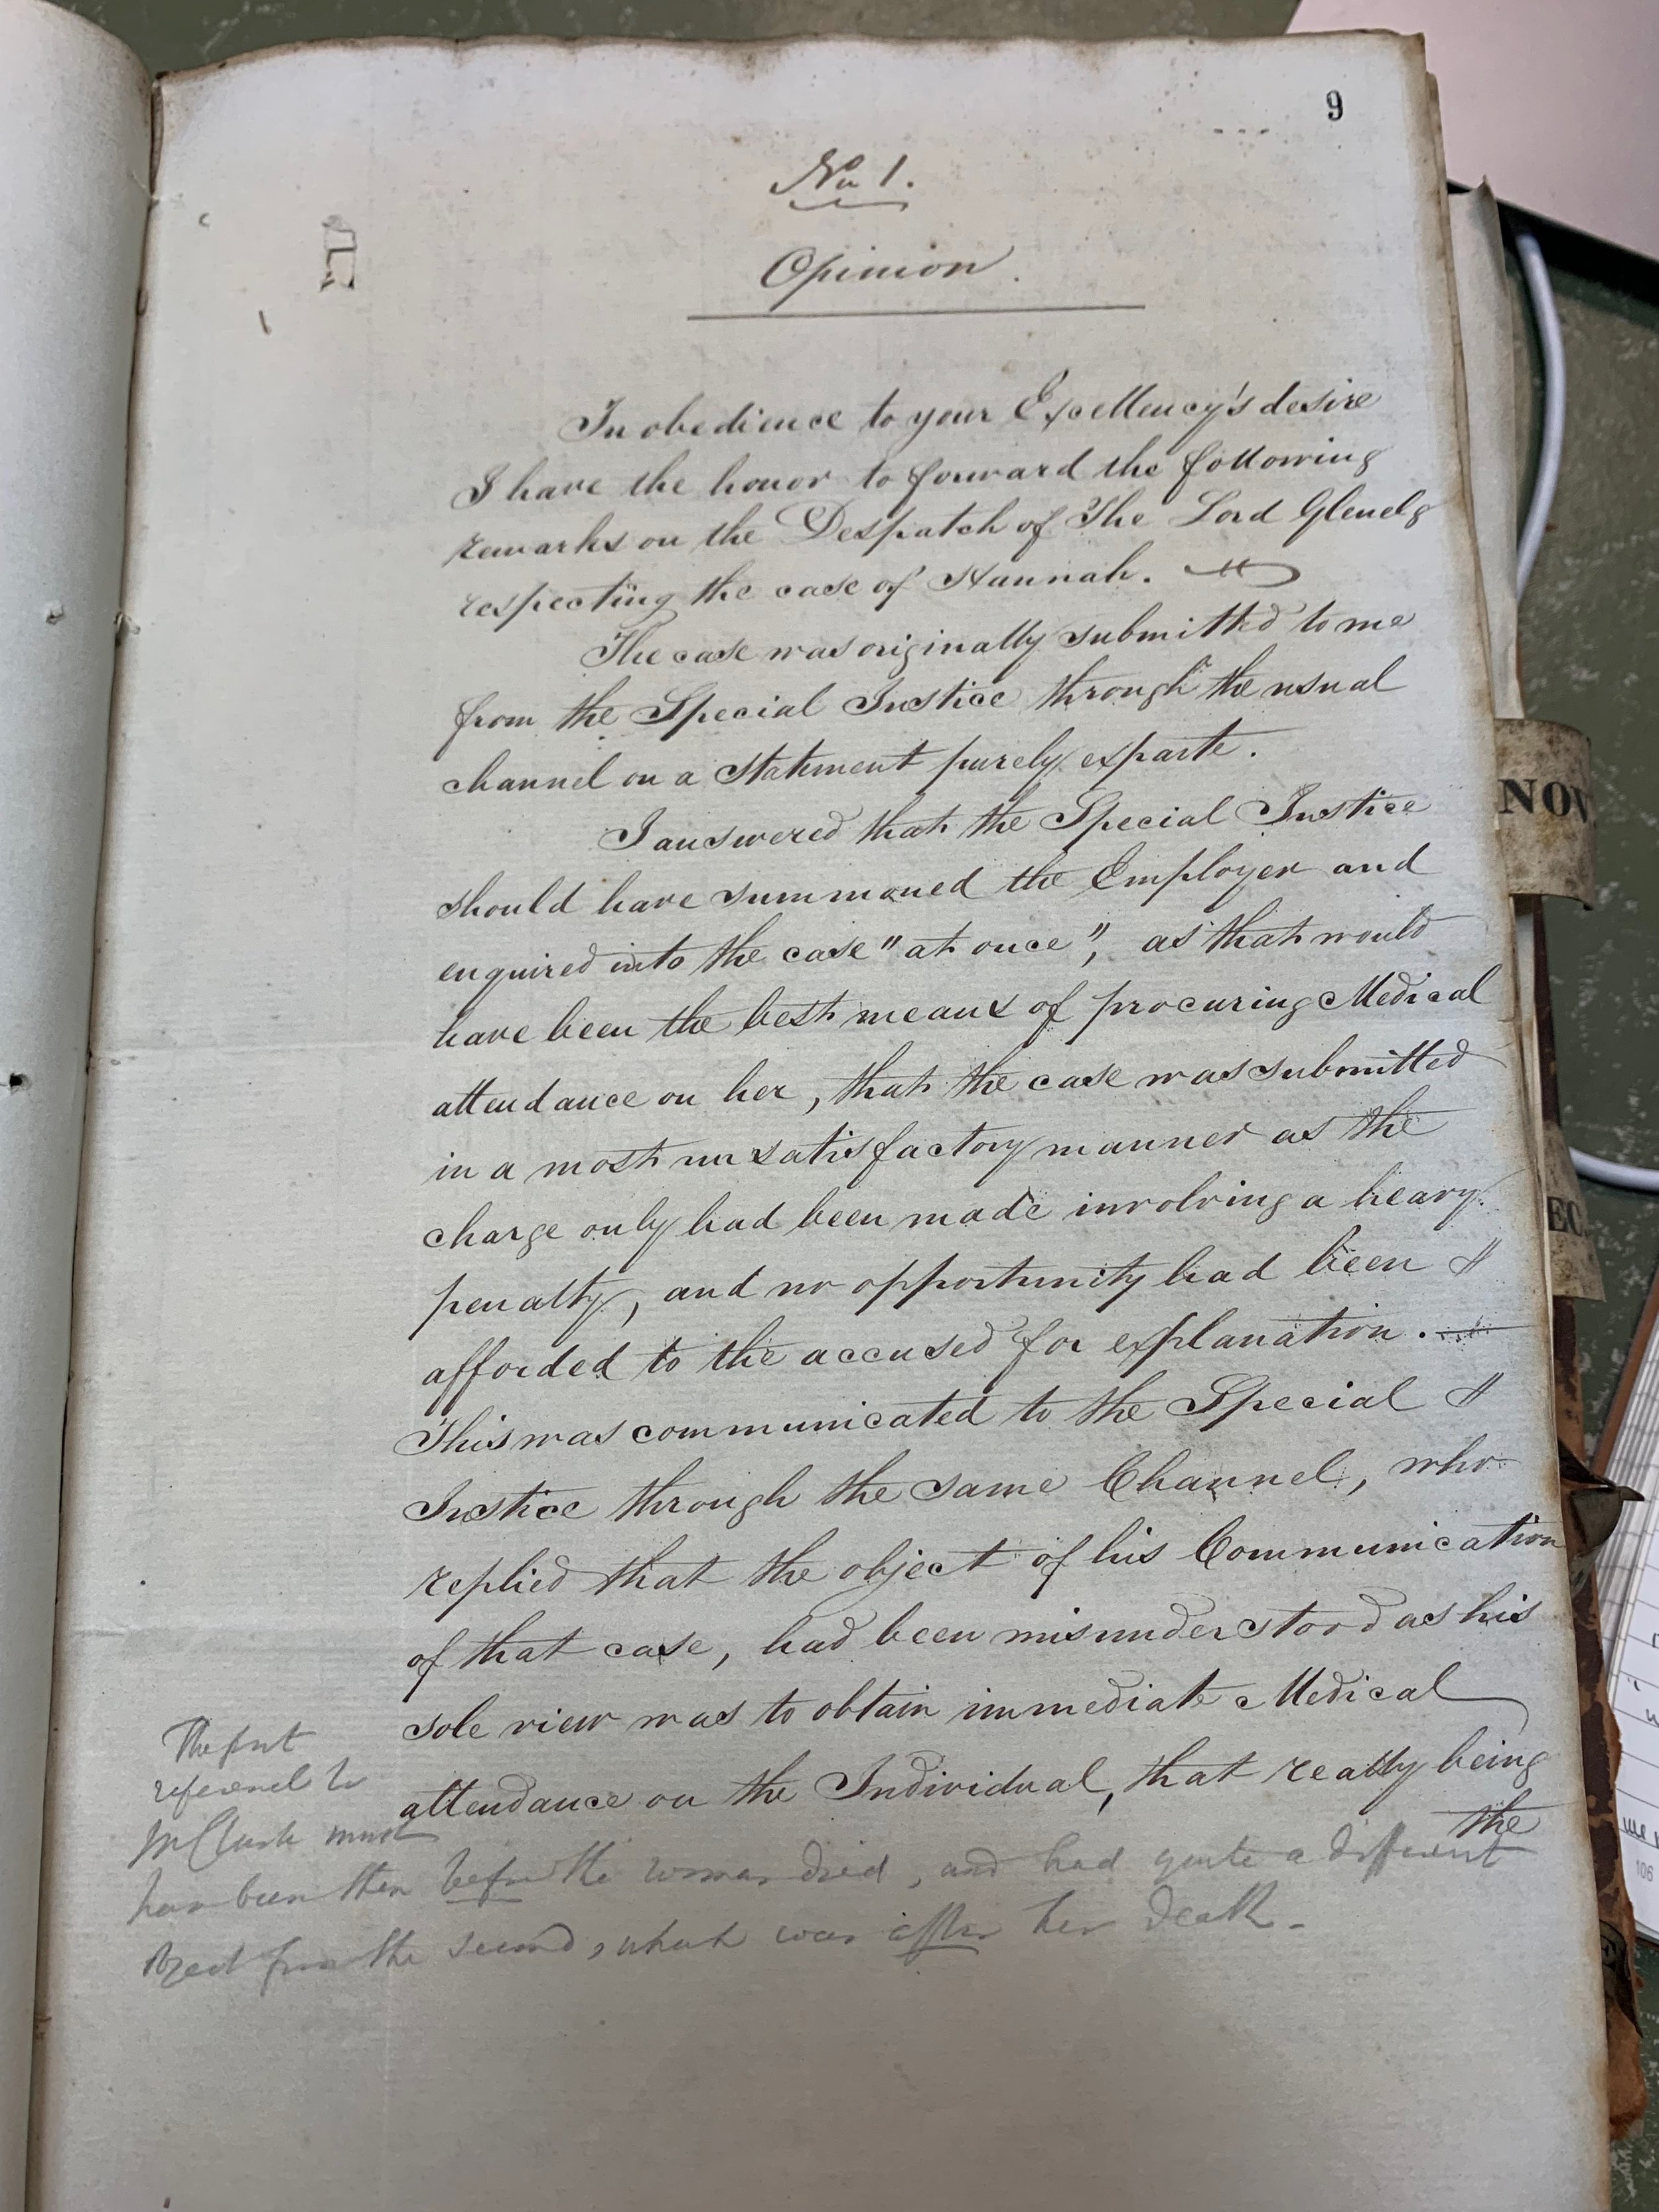 9
No 1.
Opinion.
In obedience to your Excellency's desire
I have the honor to forward the following
remarks on the Despatch of The Lord Glenelg
respecting the case of Hannah.
The case was originally submitted to me
from the Special Justice through the usual
channel on a statement purely exparte.
I answered that the Special Justice
should have summoned the Employer and
enquired into the case "at once", as that would
have been the best means of procuring Medical
attendance on her, that the case was submitted
in a most unsatisfactory manner as the
charge only had been made involving a heavy
penalty, and no opportunity had been
afforded to the accused for explanation.
This was communicated to the Special
Justice through the same Channel, who
replied that the object of his Communication
of that case, had been misunderstood as his
sole view was to obtain immediate Medical
attendance on the Individual, that really being
the
The first
reference to
must
have been then before the woman died, and had quite a different
object from the second, which was after her death.
NOV
EC
106